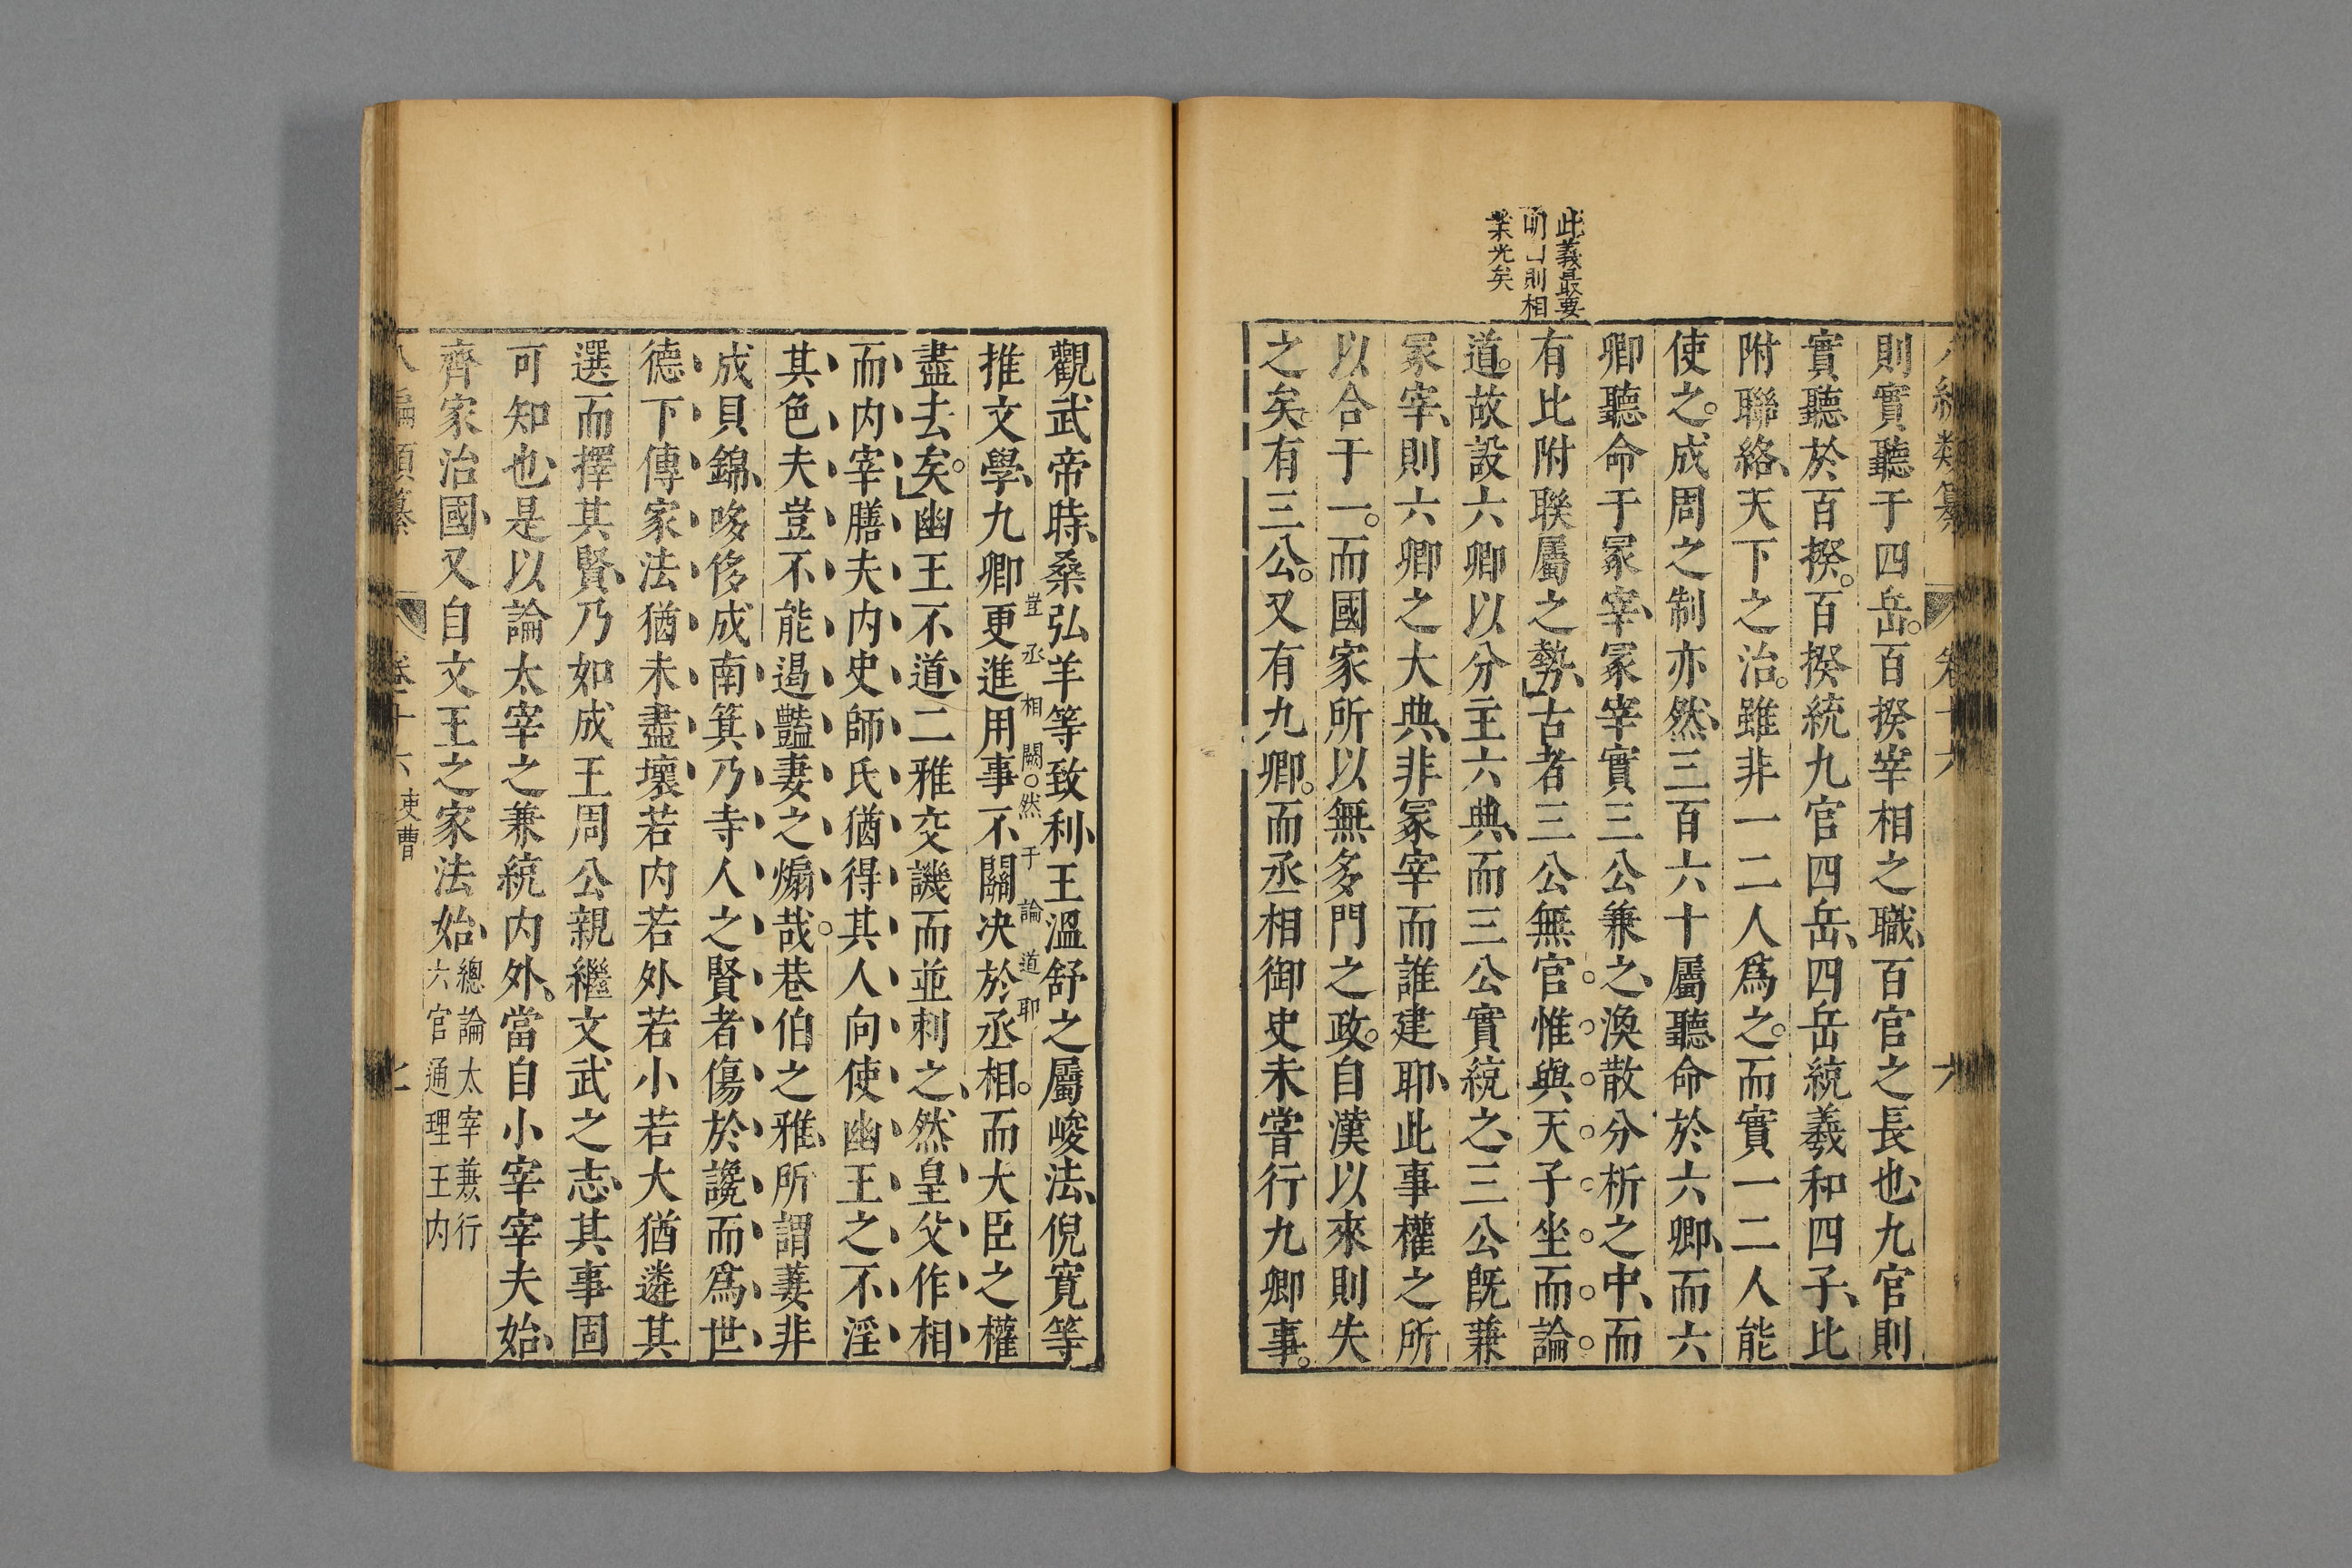 則實聽于四岳。百揆宰相之職、百官之長也、九官則
實聽於百揆。百揆統九官四岳、四岳統羲和四子、比
附聯絡、天下之治。雖非一二人爲之。而實一二人能
使之。成周之制亦然、三百六十屬聽命於六卿、而六
卿聽命于冢宰、冢宰實三公兼之、渙散分析之中、而
有比附聯屬之勢、古者三公無官惟與天子坐而論
道。故設六卿以分主六典、而三公實統之、三公旣兼
冢宰、則六卿之大典、非冢宰而誰建耶、此事權之所
以合于一。而國家所以無多門之政。自漢以來則失
之矣。有三公。又有九卿。而丞相御史未嘗行九卿事。
此義最要
明則相
業光矣
觀武帝時、桑弘羊等致利、王溫舒之屬峻法、倪寬等
豈丞相闕○然于論道耶
推文學、九卿更進用事不關决於丞相。而大臣之權
盡去矣。幽王不道、二雅交譏而並刺之、然皇父作相
而内宰膳夫内史師氏猶得其人向使幽王之不淫
其色夫豈不能遏豔妻之煽哉。巷伯之雅、所謂萋非
成貝錦、哆侈成南箕乃寺人之賢者傷於讒而爲世
德下傳家法猶未盡壞若内若外若小若大猶遴其
選而擇其賢、乃如成王周公親繼文武之志、其事固
可知也、是以論太宰之兼統内外、當自小宰宰夫始、
齊家治國、又自文王之家法始、總論太宰兼行
六官通理王内
八編類纂 卷十六 吏曹